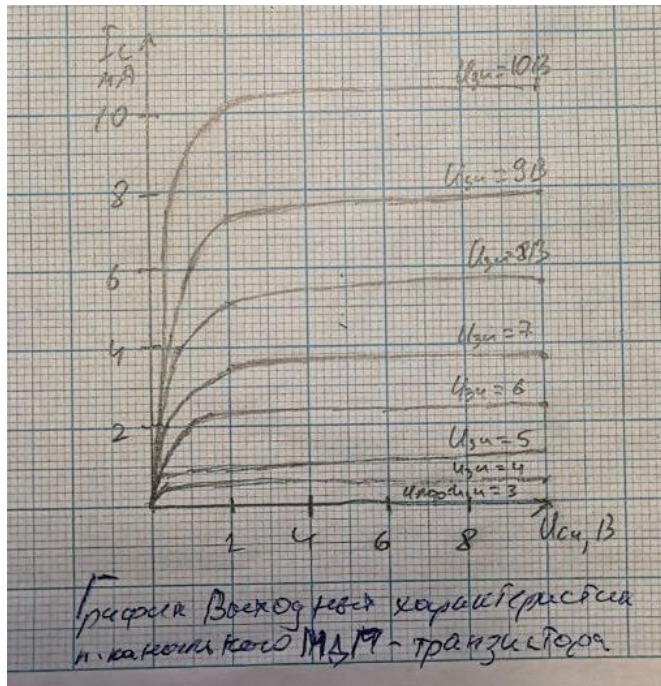 Iс
мА
10
8
6
4
2
Uзи=10В
Uзи=9В
Uзи=8В
Uзи=7
Uзи=6
Uзи=5
Uзи=4
=3
2 4 6 8
Uси, В
График Выходных характеристик
n-канального МДП-транзистора